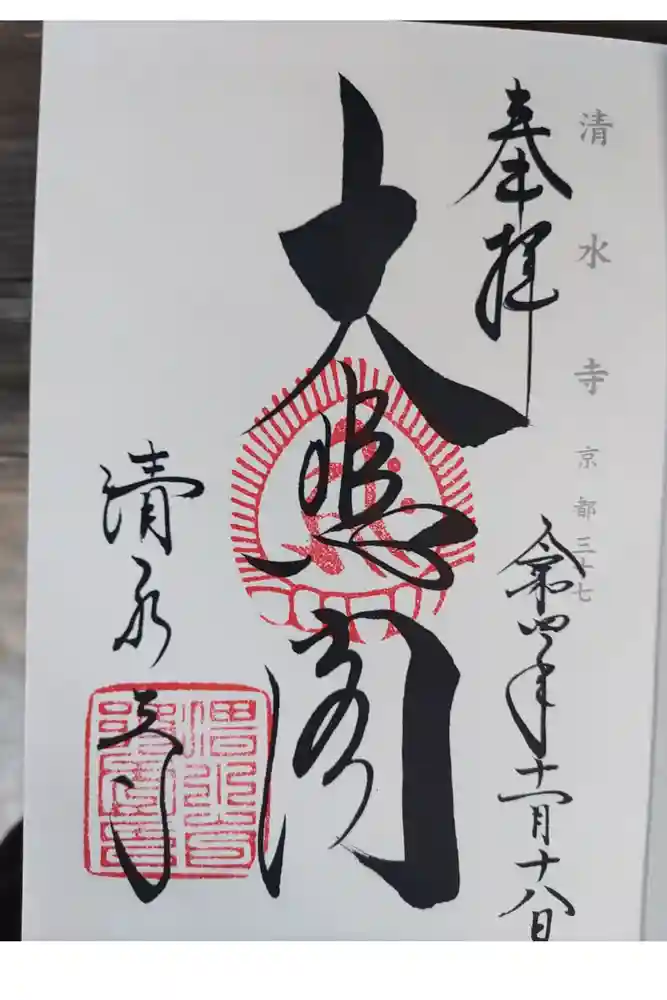 清水寺 京都三十七
奉拝
令和四年十一月十八日
大悲閣
清水寺